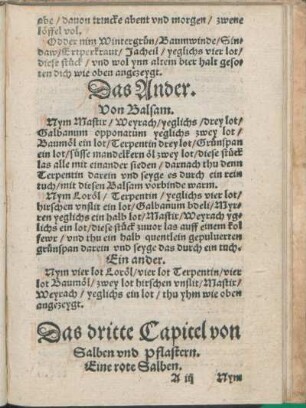 abe / dauon trincke abent vnd morgen / zwene
löffel vol.
Odder nim Wintergrün / Baumwinde / Sin-
daw / Ertperkraut / Jacheil / yeglichs vier lot /
diese stück / vnd wol ynn altem bier halt geso-
ten dich wie oben angezeygt.
Das Ander.
Von Balsam.
Nym Mastix / Weyrach / yeglichs / drey lot /
Galbanum opponatum yeglichs zwey lot /
Baumöl ein lot / Terpentin drey lot / Grünspan
ein lot / süsse mandelkern öl zwey lot / diese stück
las alle mit einander sieden / darnach thu denn
Terpentin darein vnd seyge es durch ein rein
tuch / mit diesen Balsam vorbinde warm.
Nym Loröl / Terpentin / yeglichs vier lot /
hirschen vnslit ein lot / Galbanum bdeli / Myr-
ren yeglichs ein halb lot / Mastix / Weyrach yg-
lichs ein lot / diese stück zuuor las auff einem kol
fewr / vnd thu ein halb quentlein gepuluerten
grünspan darein vnd seyge das durch ein tuch.
Ein ander.
Nym vier lot Loröl / vier lot Terpentin / vier
lot Baumöl / zwey lot hirschen vnslit / Mastix /
Weyrach / yeglichs ein lot / thu yhm wie oben
angezeygt.
Das dritte Capitel von
Salben vnd Pflastern.
Eine rote Salben.
A iij Nym